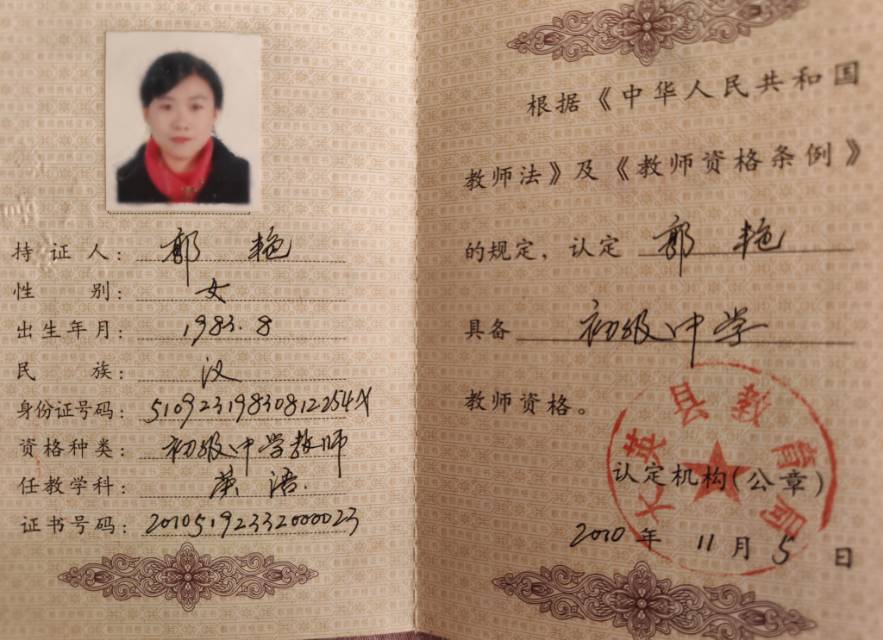 持证人：郭艳
性别：女
出生年月：1983.8
民族：汉
身份证号码：51092319830812254X
资格种类：初级中学教师
任教学科：英语.
证书号码：20105192332000023
根据《中华人民共和国
教师法》及《教师资格条例》
的规定，认定 郭艳
具备 初级中学
教师资格。
大英县教育局
认定机构(公章)
2010年11月5日